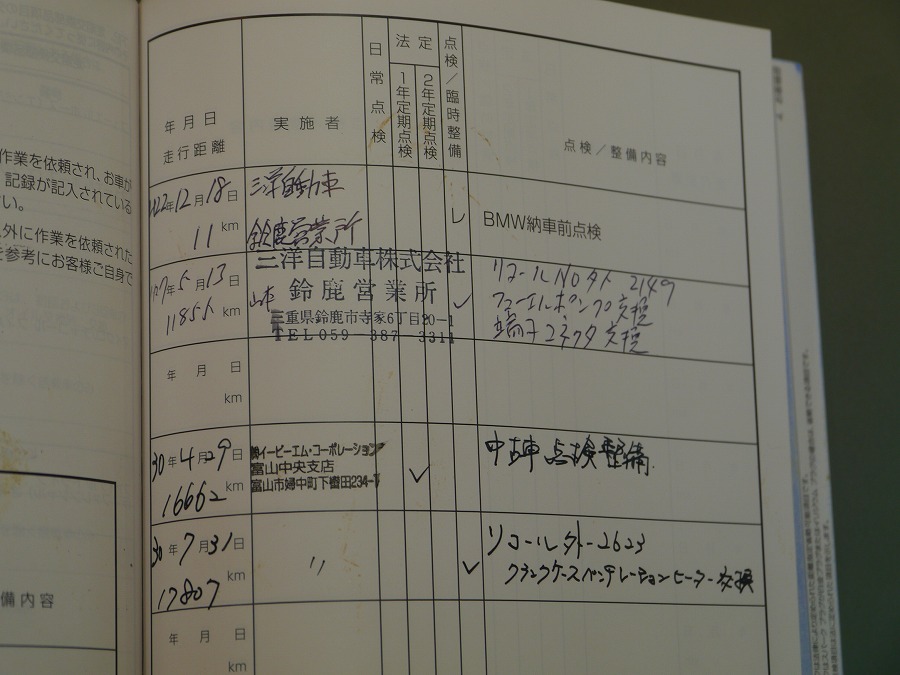 作業を依頼され、お車が
記録が記入されている
い。
外に作業を依頼された
を参考にお客様ご自身で
備内容
年月日
走行距離
実施者
日常点検
法定
1年定期点検
2年定期点検
点検/臨時整備
点検/整備内容
22年12月18日
11 km
三洋自動車
鈴鹿営業所
レ
BMW納車前点検
年5月13日
11855 km
三洋自動車株式会社
鈴鹿営業所
三重県鈴鹿市寺家6丁目20-1
TEL059-387-3311
リコールNo外 2149
フューエルポンプ交換
端子コネクタ交換
年 月 日
km
30年4月29日
16662 km
㈱イービーエム・コーポレーション
富山中央支店
富山市婦中町下轡田234-1
中古車点検整備
30年7月31日
17807 km
〃
リコール外-2623
クランクケースベンチレーションヒーター交換
年 月 日
km